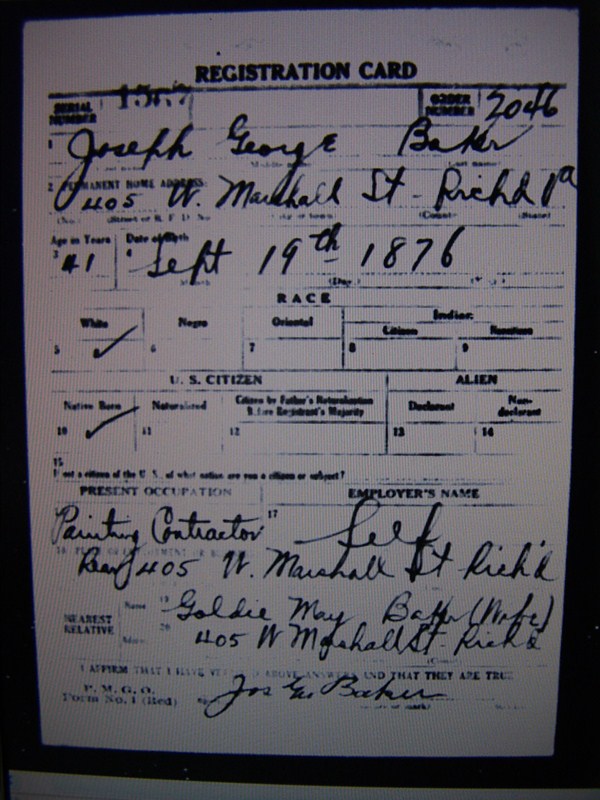 REGISTRATION CARD
SERIAL NUMBER ORDER NUMBER 2046
1 Joseph George Baker
2 PERMANENT HOME ADDRESS:
405 W. Marshall St - Rich'd Va
(No.) (Street or R. F. D. No. (County) (State)
Age in Years Date of Birth
3 41 4 Sept 19th 1876
Month (Day)
RACE
White Negro Oriental Indian
Citizen
5 ✓ 6 7 8 9
U. S. CITIZEN ALIEN
Native Born Naturalized Citizen by Father's Naturalization Before Registrant's Majority Declarant Non-declarant
10 ✓ 11 12 13 14
15
If not a citizen of the U. S. of what nation are you a citizen or subject?
PRESENT OCCUPATION EMPLOYER'S NAME
Painting Contractor 17 Self
Rear 405 W. Marshall St Rich'd
NEAREST RELATIVE Name 19 Goldie May Baker (Wife)
20 405 W Marshall St - Rich'd
I AFFIRM THAT I HAVE ABOVE ANSWERS AND THAT THEY ARE TRUE
P. M. G. O.
Form No. 1 (Red) Jos Geo Baker